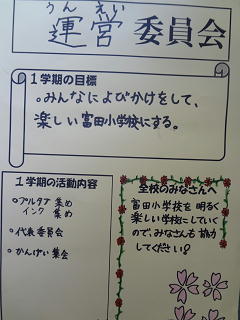 うんえい
運営委員会
1学期の目標
○みんなによびかけをして、
楽しい富田小学校にする。
1学期の活動内容
○プルタブ 集め
インク 集め
○代表委員会
○かんげい集会
全校のみなさんへ
富田小学校を明るく
楽しい学校にしていく
ので、みなさんも協力
してください!